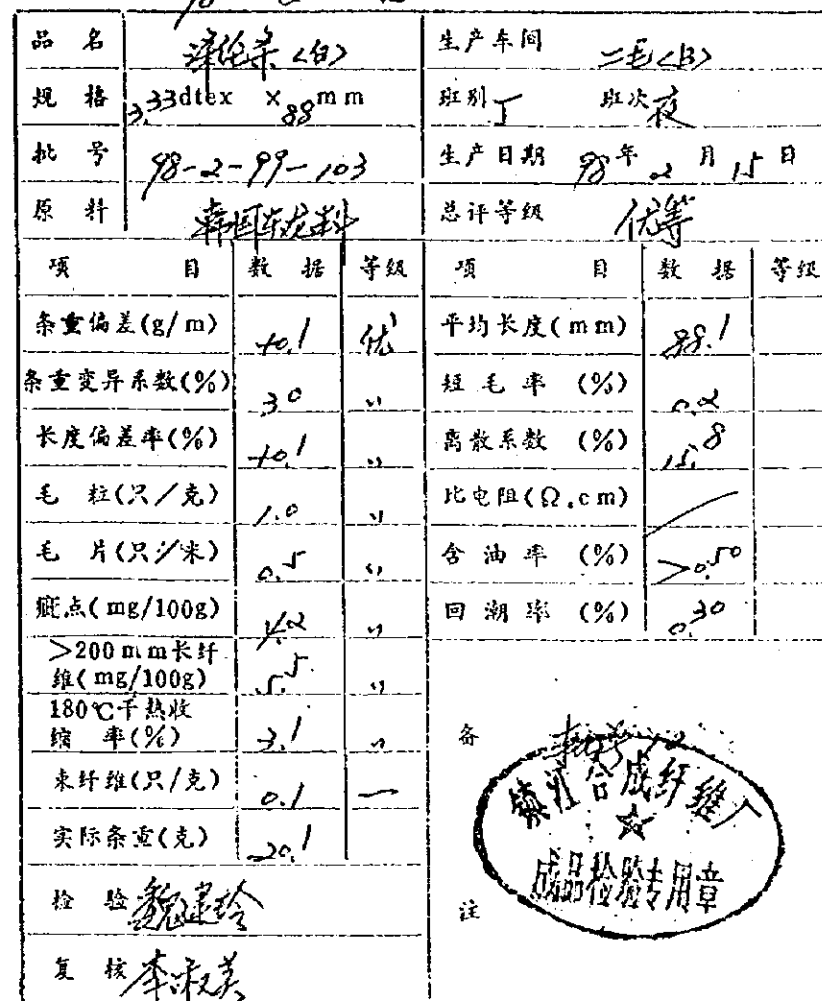 品 名 涤纶条<白> 生产车间 二毛<B>
规 格 3.33dtex ×88mm 班别 丁 班次 夜
批 号 98-2-99-103 生产日期 98年 2 月 15 日
原 料 韩国东龙料 总评等级 优等
项 目 数 据 等级 项 目 数 据 等级
条重偏差(g/m) +0.1 优 平均长度(mm) 88.1
条重变异系数(%) 3.0 〃 短毛率 (%) 0.2
长度偏差率(%) +0.1 〃 离散系数 (%) 15.8
毛 粒(只/克) 1.0 〃 比电阻(Ω.cm) /
毛 片(只/米) 0.5 〃 含油率 (%) >0.50
疵点(mg/100g) 4.2 〃 回潮率 (%) 0.30
>200mm长纤
维(mg/100g) 5.5 〃
180℃干热收
缩 率(%) 3.1 〃
束纤维(只/克) 0.1 —
实际条重(克) 20.1
检 验 魏建玲
复 核 李淑美
备
注
镇江合成纤维厂
成品检验专用章